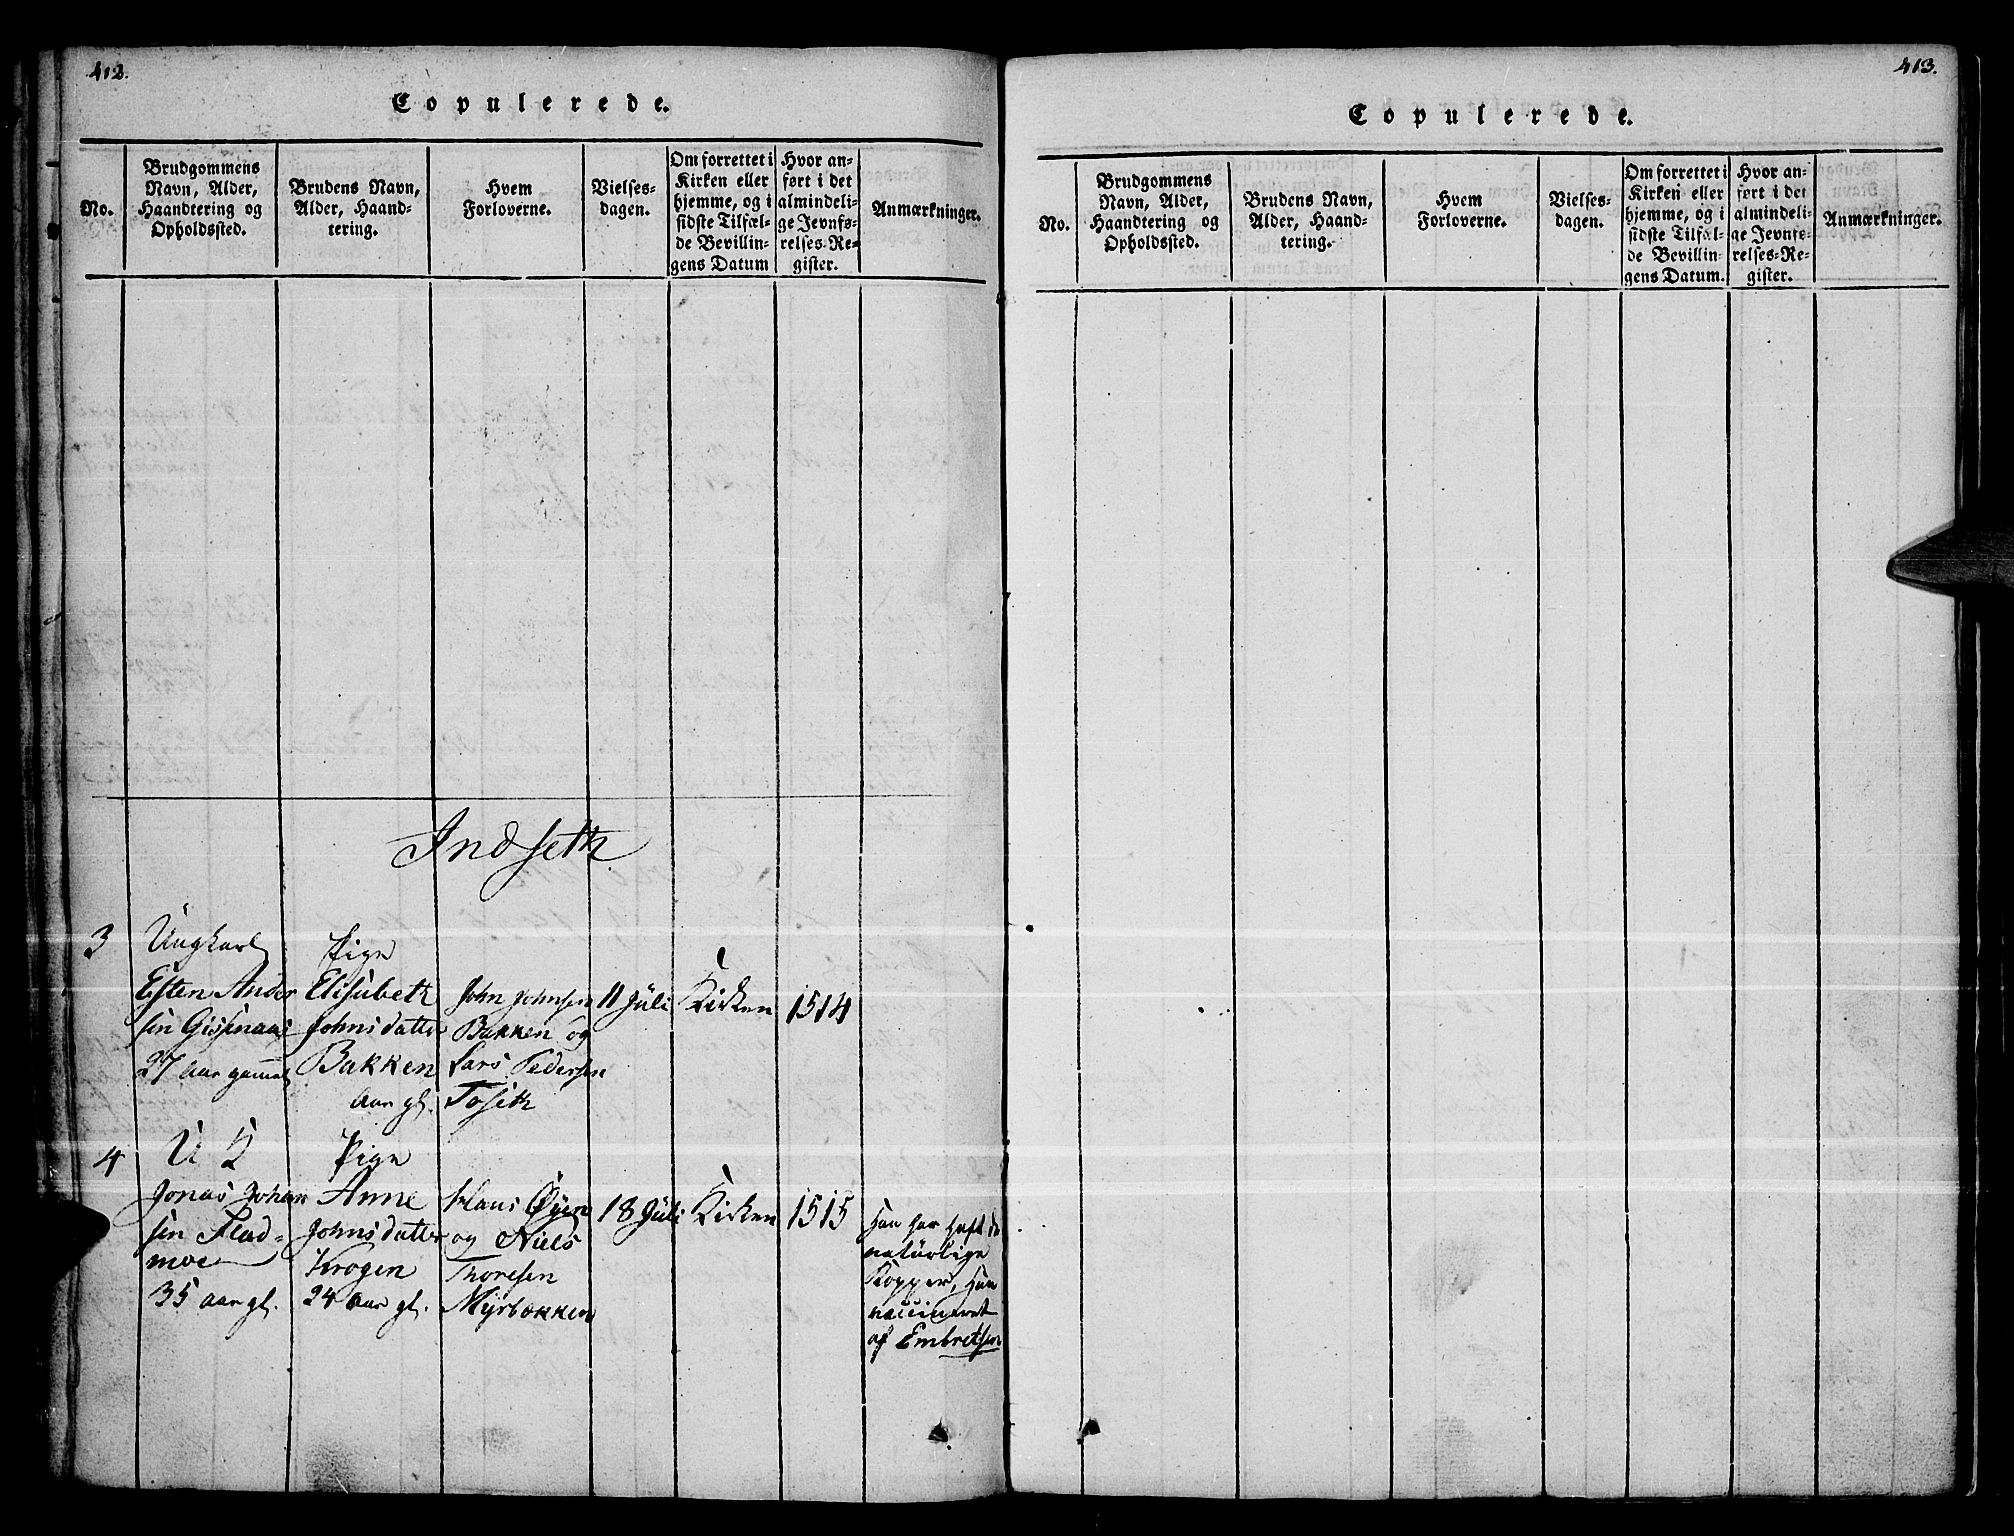 412.
Copulerede.
No.
Brudgommens
Navn, Alder,
Haandtering og
Opholdssted.
Brudens Navn,
Alder, Haand-
tering.
Hvem
Forloverne.
Vielses-
dagen.
Om forrettet i
Kirken eller
hjemme, og i
sidste Tilfæl-
de Bevillin-
gens Datum
Hvor an-
ført i det
almindeli-
ge Jevnfø-
relses-Re-
gister.
Anmærkninger.
Indseth
3
Ungkarl
Esten Ander
sen
27 aar gammel
Pige
Elisabeth
Johnsdatter
Bakken
aar gl.
John Johnsen
Bakken og
Lars Pedersen
Toseth
11 Juli
Kirken
1514
4
U K
Jonas Johan
sen Flad-
moe
35 aar gl.
Pige
Anne
Johnsdatter
Krogen
24 aar gl.
Klaus Øyen
og Niels
Thoresen
Myrbakken
18 Juli
Kirken
1515
Han har haft de
natürlige
Kopper, Hun
vaccineret
af Embretsen
413.
Copulerede.
No.
Brudgommens
Navn, Alder,
Haandtering og
Opholdssted.
Brudens Navn,
Alder, Haand-
tering.
Hvem
Forloverne.
Vielses-
dagen.
Om forrettet i
Kirken eller
hjemme, og i
sidste Tilfæl-
de Bevillin-
gens Datum.
Hvor an-
ført i det
almindeli-
ge Jevnfø-
relses-Re-
gister.
Anmærkninger.